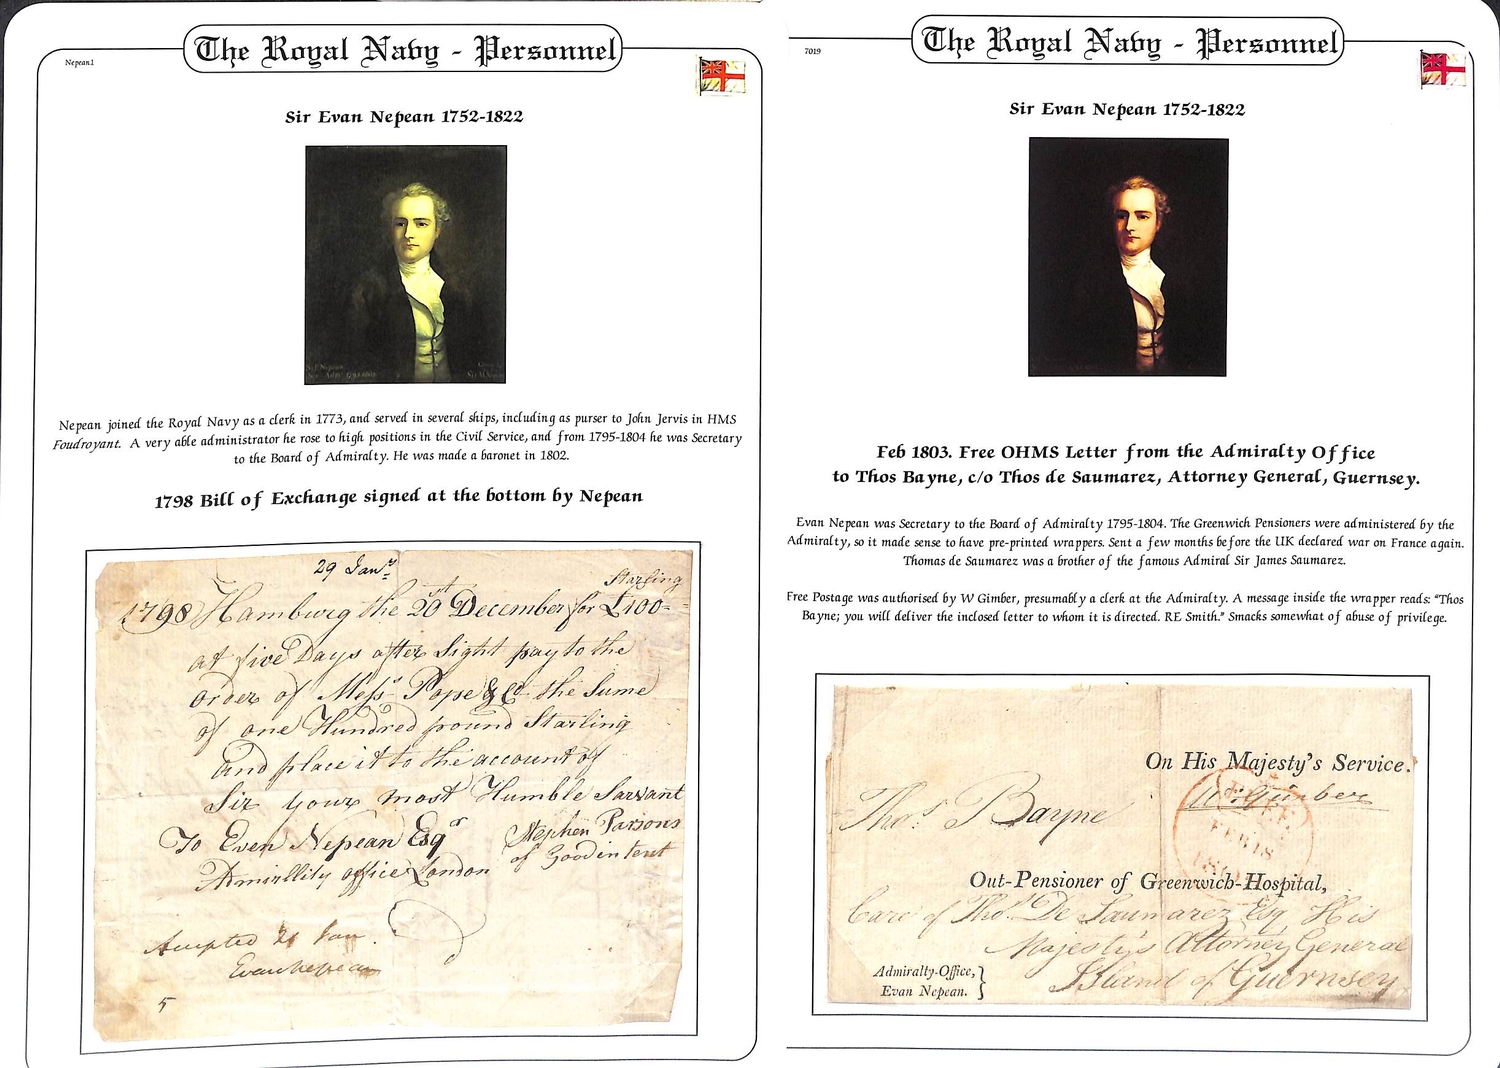 Nepean1
The Royal Navy - Personnel
Sir Evan Nepean 1752-1822
Nepean joined the Royal Navy as a clerk in 1773, and served in several ships, including as purser to John Jervis in HMS
Foudroyant. A very able administrator he rose to high positions in the Civil Service, and from 1795-1804 he was Secretary
to the Board of Admiralty. He was made a baronet in 1802.
1798 Bill of Exchange signed at the bottom by Nepean
29 Janry
Starling
1798 Hamburg the 20st December for £100=
at five Days after Sight pay to the
order of Messrs Pope & Co the Sume
of one Hundred pound Starling
and place it to the account of
Sir your most Humble Sarvant
To Even Nepean Esqr
Stephen Parsons
of Goodintent
Admirllity office London
Accepted 21 Jan
Evan Nepean
5
7019
The Royal Navy - Personnel
Sir Evan Nepean 1752-1822
Feb 1803. Free OHMS Letter from the Admiralty Office
to Thos Bayne, c/o Thos de Saumarez, Attorney General, Guernsey.
Evan Nepean was Secretary to the Board of Admiralty 1795-1804. The Greenwich Pensioners were administered by the
Admiralty, so it made sense to have pre-printed wrappers. Sent a few months before the UK declared war on France again.
Thomas de Saumarez was a brother of the famous Admiral Sir James Saumarez.
Free Postage was authorised by W Gimber, presumably a clerk at the Admiralty. A message inside the wrapper reads: "Thos
Bayne; you will deliver the inclosed letter to whom it is directed. RE Smith." Smacks somewhat of abuse of privilege.
On His Majesty's Service.
Wm Gimber
Thos. Bayne
Out-Pensioner of Greenwich-Hospital,
Care of Thos. De Saumarez Esq His
Majesty's Attorney General
Island of Guernsey
Admiralty-Office,
Evan Nepean.